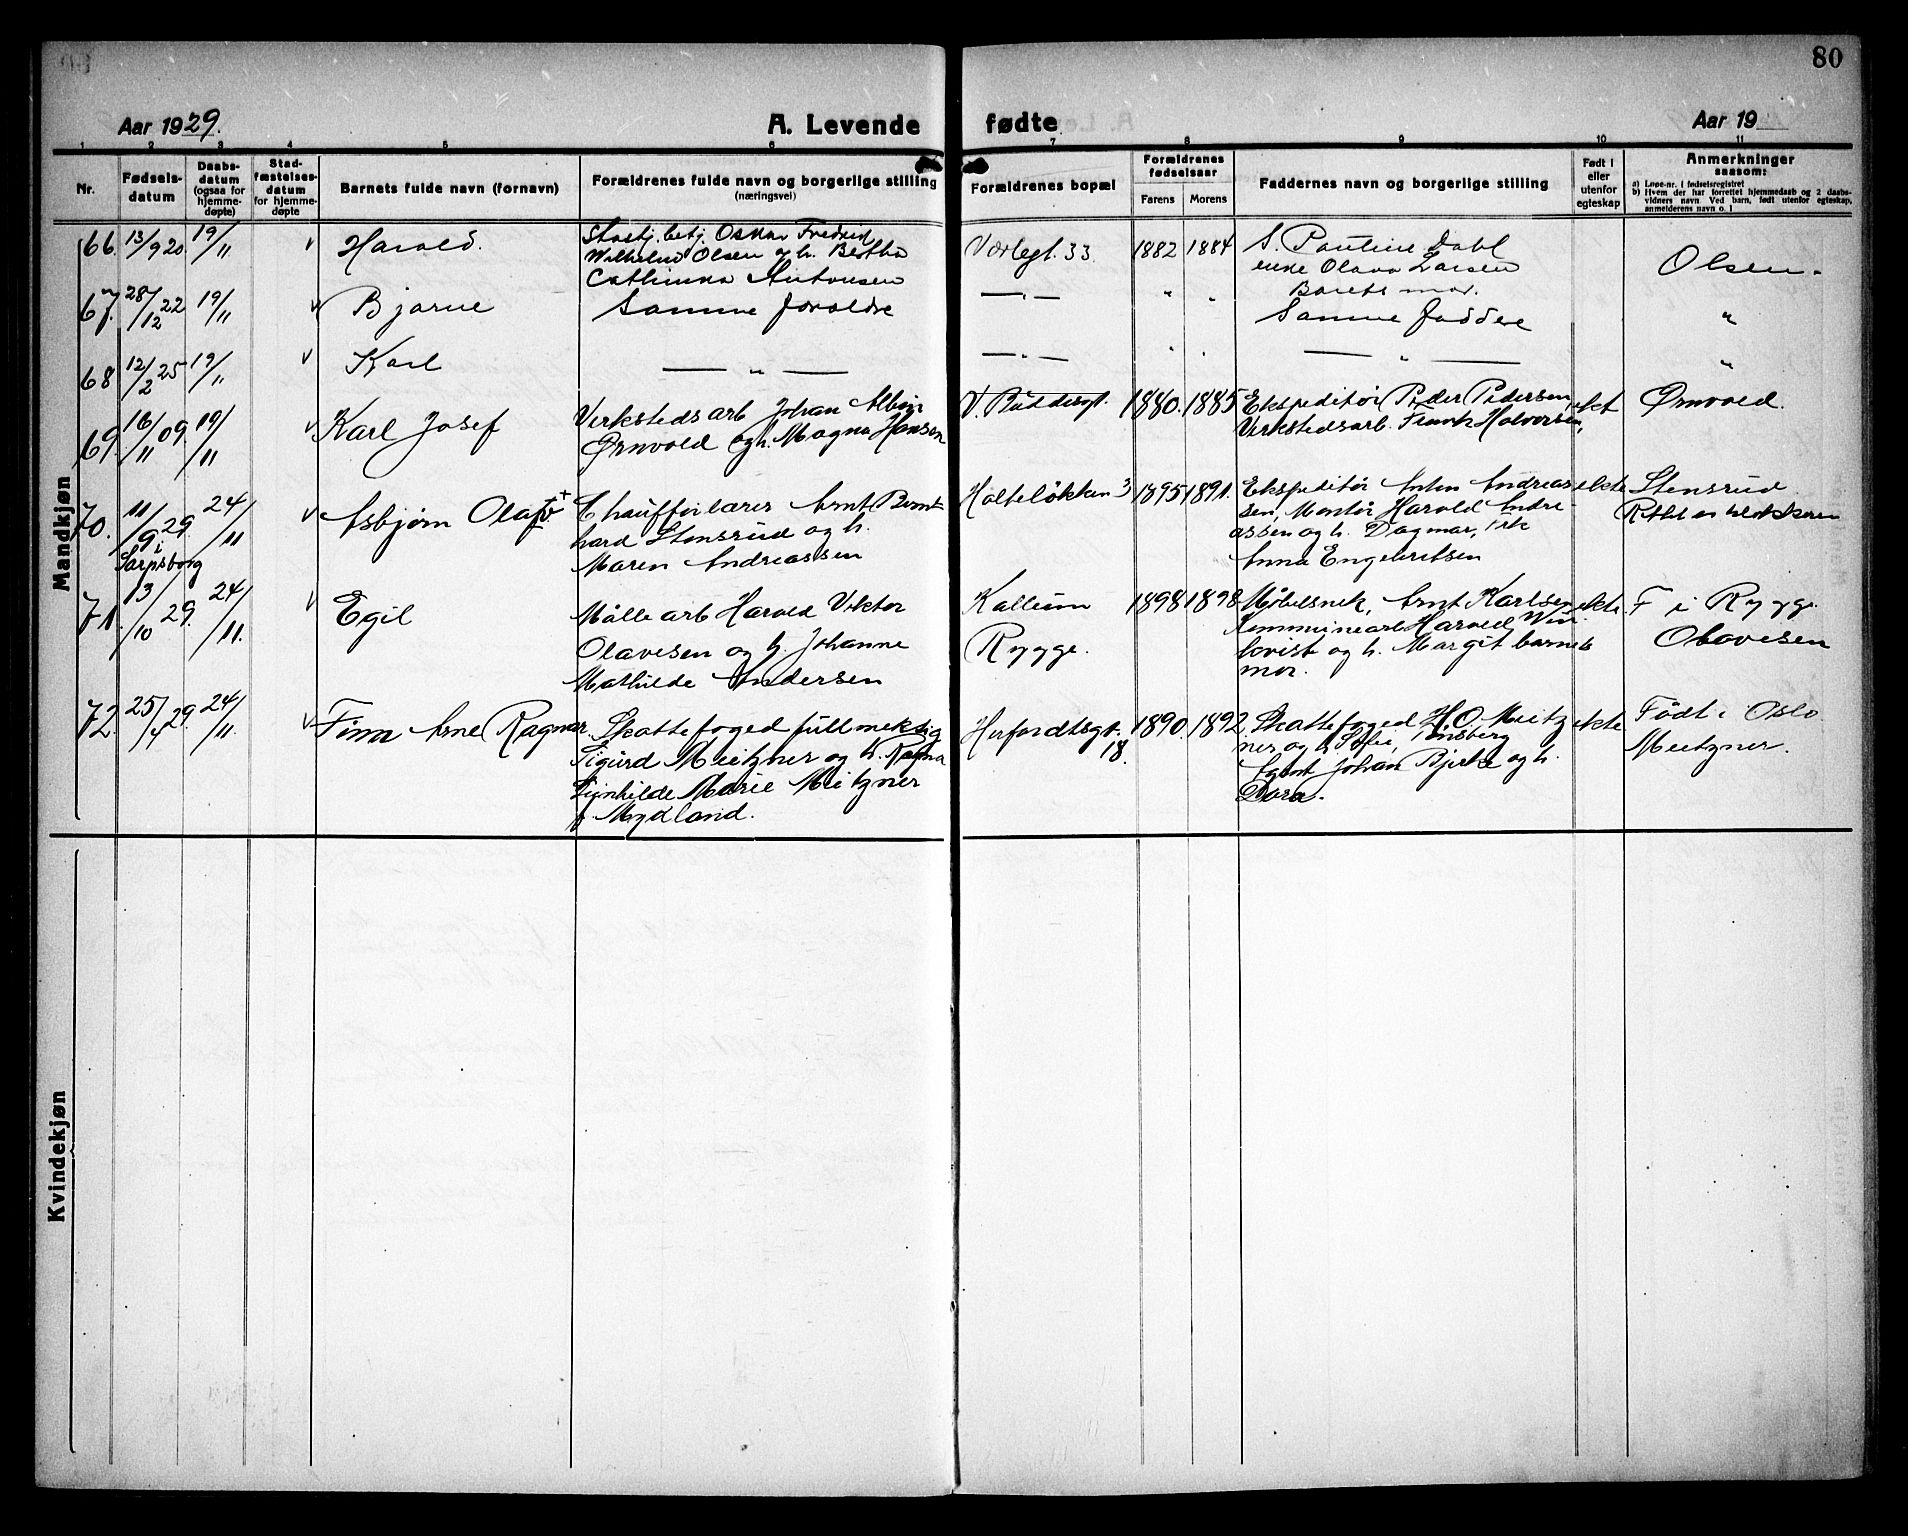 80
Aar 1929.
A. Levende fødte
Aar 19
1 2 3 4 5 6 7 8 9 10 11
Nr.
Fødselsdatum
Daabsdatum (ogsaa for hjemmedøpte)
Stadfæstelsesdatum for hjemmedøpte
Barnets fulde navn (fornavn)
Forældrenes fulde navn og borgerlige stilling (næringsvei)
Forældrenes bopæl
Forældrenes fødselsaar
Farens Morens
Faddernes navn og borgerlige stilling
Født i eller utenfor egteskap
Anmerkninger saasom:
a) Løpe-nr. i fødselsregistret
b) Hvem der har forrettet hjemmedaab og 2 daabsvidners navn. Ved barn, født utenfor egteskap, anmelderens navn o. l
Mandkjøn
66. 13/9 20. 19/11 Harald.
Oskar Fredrik
Wilhelm Olsen og h. Bertha
Cathinka Antonsen
Værlegt. 33. 1882 1884
S. Pauline Dahl
enke Olava Larsen
Barets mor.
Olsen.
67. 28/12 22 19/11 Bjarne
Samme foreldre
— " — " "
Samme faddere
"
68 12/2 25 19/11 Karl
— " —
— " — " "
— " —
"
69. 16/11 09. 19/11 Karl Josef
Verksteds arb Johan Albin
Ørnvold og h. Magna Hansen
V. Buddesgt. 1880. 1885
Ekspeditør Peder Pedersen,
Verkstedsarb. Frank Halvorsen,
ekt
Ørnvold.
70. 11/9 29. 24/11 Asbjørn Olaf
i Sarpsborg
Chaufførlærer Arnt Bernt-
hard Stensrud og h.
Maren Andreassen
Holteløkken 3 1895 1891.
Ekspeditør Anton Andreas-
sen, Montør Harald Andre-
assen og h. Dagmar, frk
Anna Engebretsen
ekte
Stensrud
71. 13/10 29. 24/11. Egil
Mølle arb Harald Viktor
Olavesen og h. Johanne
Mathilde Andersen
Kallum
Rygge.
1898 1898
Møbelsnek, Arnt Karlsen
Kommunearb Harald Win-
qvist og h. Margit barnets
mor.
ekte
F i Rygge.
Olavesen
72. 25/4 29. 24/11. Finn Arne Ragnar.
Skattefoged fullmektig
Sigurd Meitzner og h. Ragna
Marie Meitzner
f. Mydland.
Herfordtsgt. 18. 1890. 1892
Skattefoged H.O. Meitz-
ner og h. Sofie, Tønsberg
Agent Johan Bjerke og h.
Dora.
ekte
Født i Oslo
Meitzner.
Kvindekjøn